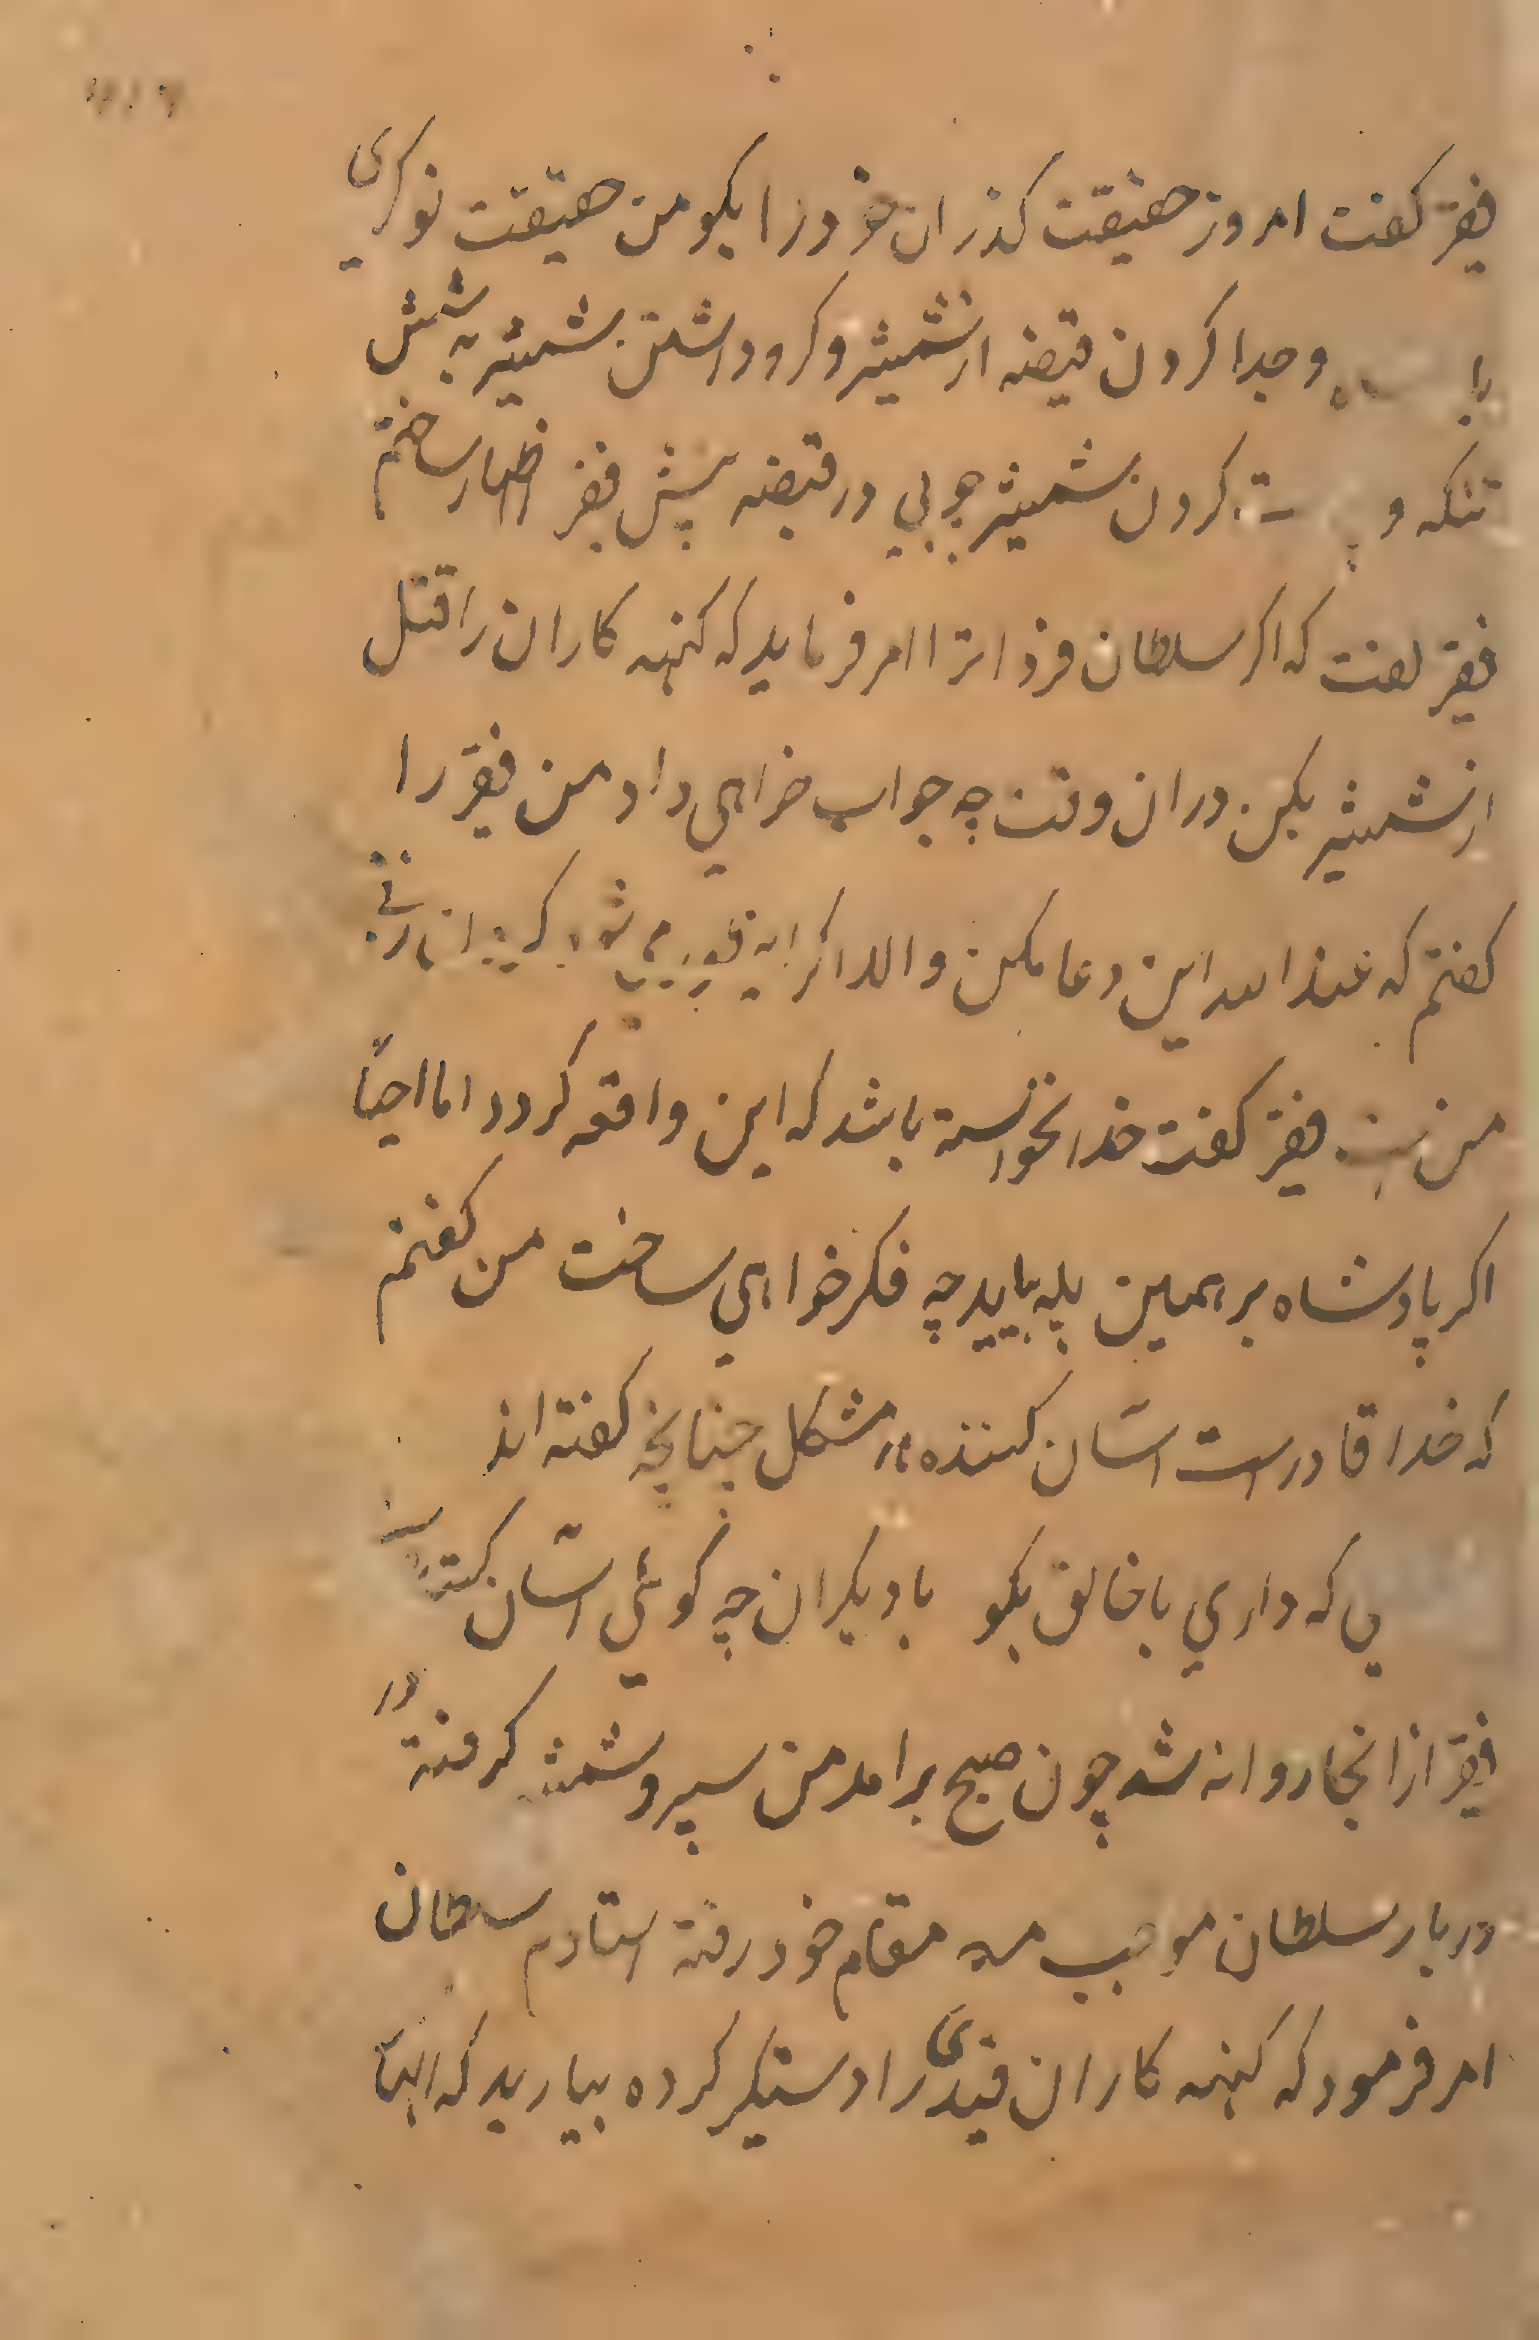 فقیر کفت امروز حقیقت کذران خود را بکو من حقیقت نوکری
و جدا کردن قبضه از شمشیر و کرو داشتن شمشیر به شش
تنکه و کردن شمشیر چوبی در قبضه پیش فقیر اظهار ساختم
فقیر کفت که اکر سلطان فردا ترا امر فرماید که کنهه کاران را قتل
از شمشیر بکن دران وقت چه جواب خواهی داد من فقیر را
کفتم که این دعا مکن والا اکر
من فقیر کفت خدا نخواسته باشد که این واقعه کردد اما احیاً
اکر پادشاه بر همین پله بیاید چه فکر خواهی ساخت من کفتم
که خدا قادر است اسان کننده هر مشکل چنانچه کفته اند
که داری با خالق بکو با دیکران چه کوئی اسان
فقیر از انجا روانه شد چون صبح برامد من سپر و شمشیر کرفته در
دربار سلطان موجب مقام خود رفته استادم سلطان
امر فرمود که کنهه کاران قیدی را دستکیر کرده بیارید که